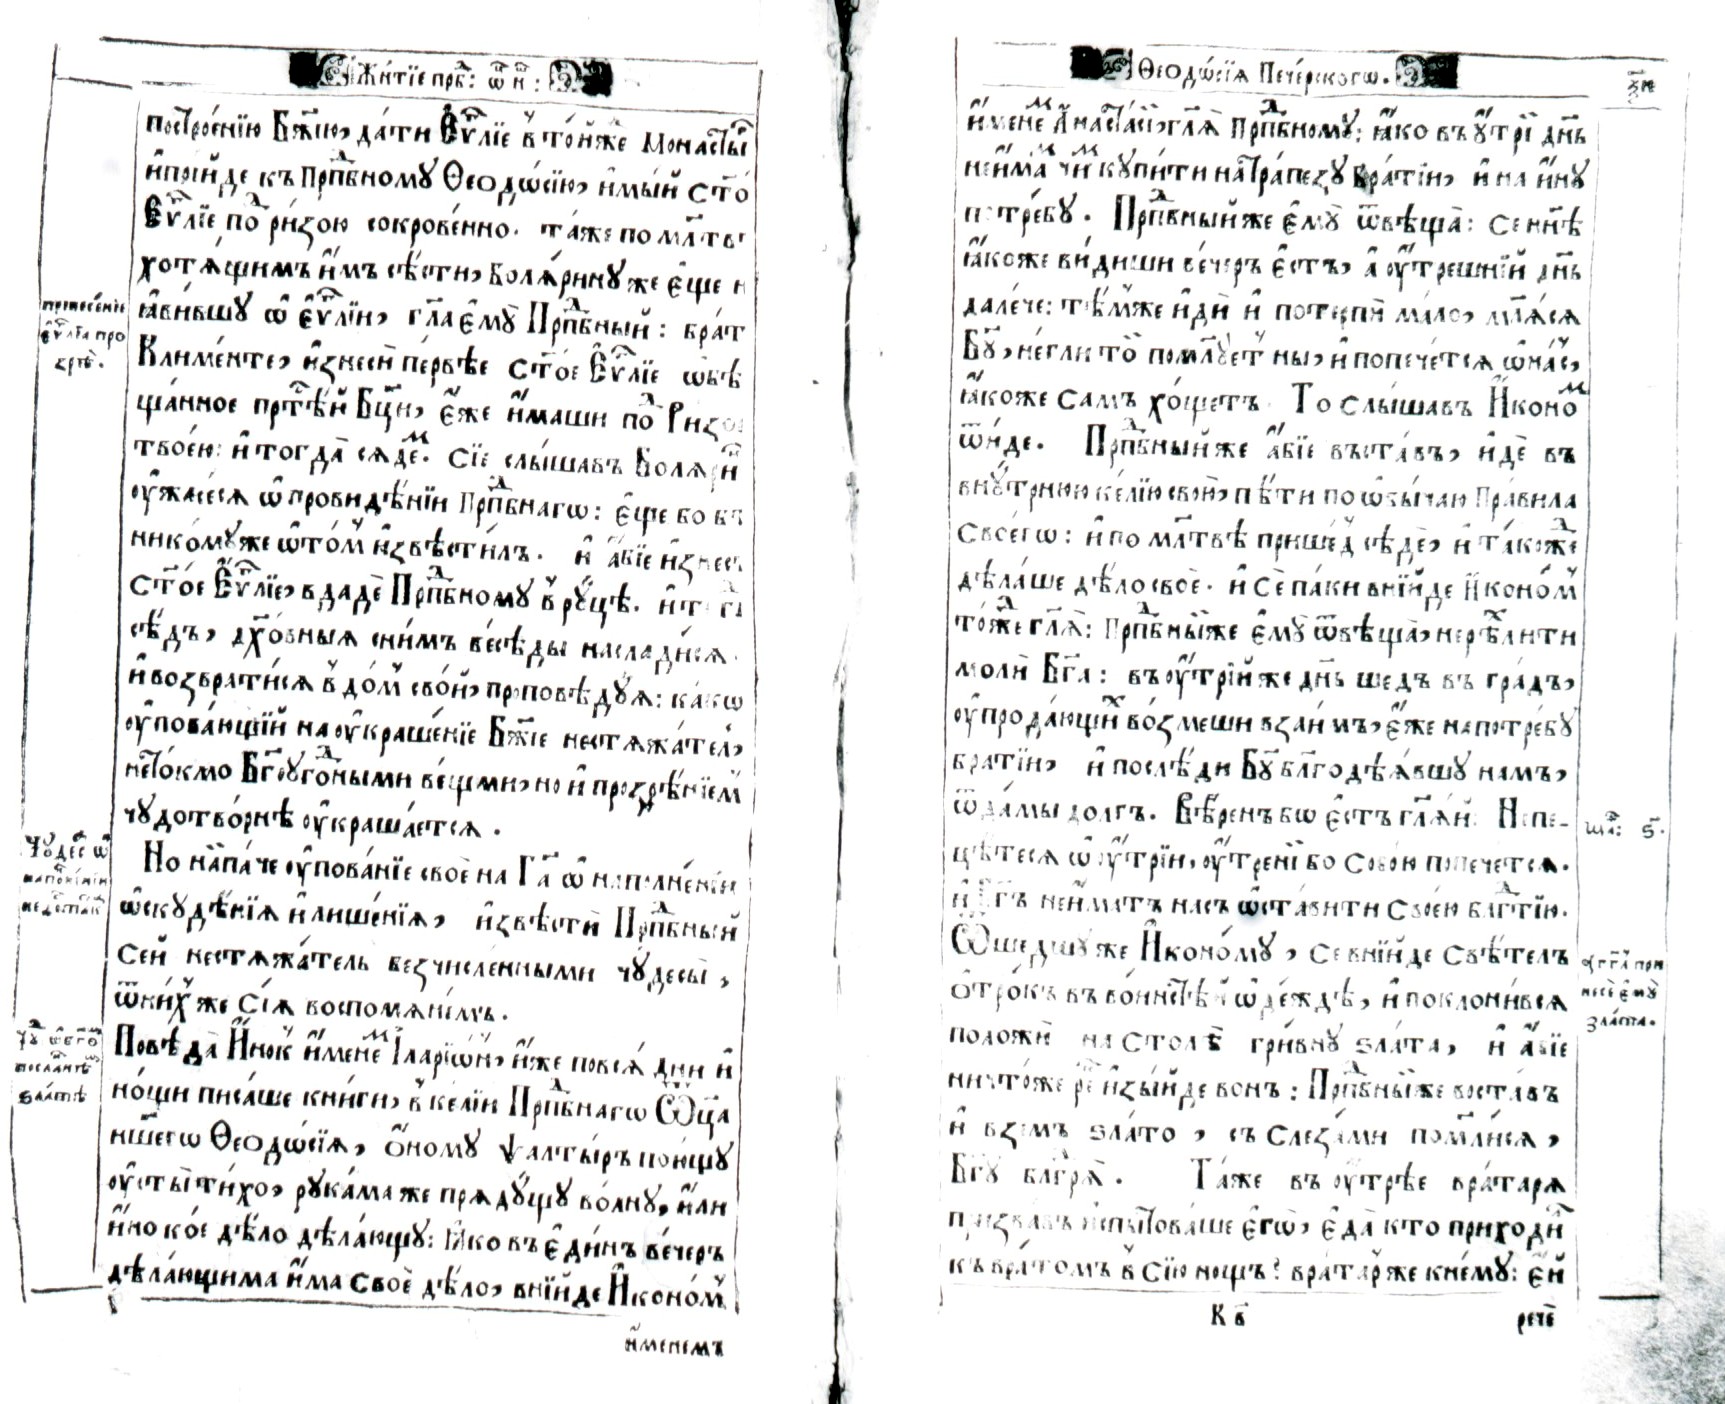 Жи́тїе прпⷣб: ѿц҃ъ н҃:
построе́нїю Бж҃їю, да́ти Еѵⷢ҇лїе в то́йже Монасты
и҆прїи́де къ Прпⷣбному Ѳеодѡ́сїю, и҆мы́й ст҃о́
Еѵⷢ҇лїе поⷣ ри́зою сокрове́нно. та́же по мл҃тв
хотѧ́щимъ и҆́мъ сѣ́сти, Болѧ́рину же є҆ще н
ꙗ҆ви́вшу ѡ҆ є҆ѵⷢ҇лїи, гл҃а є҆мꙋ̀ Прпⷣбный: бра́т
Климе́нте, и҆знесѝ пе́рвѣе ст҃о́е Еѵⷢ҇лїе ѡ҆бѣ
ща́нное прⷭ҇тѣ́й Бц҃и, є҆́же и҆́маши поⷣ Ри́зо
твое́ю: и҆ тогда̀ сѧ́демⷨ. Сїе слы́шавъ Болѧ́ри́
оу҆жасе́сѧ ѡ҆ провидѣ́нїи Прпⷣбнагѡ: є҆ще бо
никомꙋ́же ѡ҆ то́м и҆звѣсти́лъ. и҆ а҆́бїе и҆знесъ
ст҃о́е Еѵⷢ҇лїе, вдадѐ Прпⷣбному в рꙋ́цѣ. и҆
сѣ́дъ, дх҃о́вныѧ сни́мъ бесѣ́ды наслади́сѧ.
и҆ возврати́сѧ в до́м сво́й, проповѣ́дꙋѧ: ка́кѡ
оу҆пова́ющїй на оу҆краше́нїе Бж҃їе нестѧжа́тел,
не то́кмо Бг҃оуго́дными ве́щми, но и҆ прозрѣ́нїем
чꙋдотво́рнѣ оу҆краша́етсѧ.
Но наипа́че оу҆пова́нїе своѐ на Гⷭ҇а ѡ҆ наполне́нїи
ѡ҆скꙋдѣ́нїѧ и҆ лише́нїѧ, и҆звѣстѝ Прпⷣбный
Сей нестѧжа́тель безчи́сленными чꙋдесы̀,
ѿ ни́хже Сїѧ̀ воспомѧне́мъ.
Повѣ́да И҆́нок и҆́менемⷨ І҆ларїѡ́н, и҆́же по всѧ̀ дни и҆
но́щи писа́ше кни́ги, в ке́лїи Прпⷣбнагѡ Ѻ҆ц҃а
на́шегѡ Ѳеодѡ́сїѧ, ѻ҆́ному ѱалты́ръ пою́щꙋ
оу҆сты̀ ти́хо, рука́ма же прѧдꙋ́щꙋ во́лнꙋ, и҆лѝ
и҆́но ко́е дѣ́ло дѣ́лающꙋ: Ꙗ҆́ко въ є҆ди́нъ ве́черъ
дѣ́лающима и҆́ма своѐ дѣ́ло, вни́йде И҆коно́м
и҆́менемъ
принесе́нїе
є҆ѵⷢ҇лїа про
зрѣ̀.
Чꙋдеⷭ҇ ѡ
наполне́нїи
недоста́тк
Чꙋⷣ ѡ҆ бг҃о
посланнѣⷨ
ѕла́тѣ
Ѳеодѡ́сїѧ Пече́рскогѡ.
и҆́менемⷨ А҆наста́сїй, гл҃ѧ Прпⷣбному: ꙗ҆́ко въ оу҆́трїй дн҃ь
не и҆́мамⷨ чи́мⷨ кꙋпи́ти на тра́пезꙋ бра́тїи, и҆ на и҆́нꙋ
потре́бꙋ. Прпⷣбный же є҆мꙋ̀ ѿвѣща̀: Се нн҃ѣ
ꙗ҆́коже ви́диши ве́черъ є҆́стъ, а҆ оу҆́трешнїй дн҃ь
дале́че: тѣ́мже и҆дѝ и҆ потерпѝ ма́ло, мл҃ѧсѧ
Бг҃ꙋ, не́гли то̀ поми́луетъ ны̀, и҆ попече́тсѧ ѡ҆ на́с,
ꙗ҆́коже Са́мъ хо́щетъ. То слы́шавъ И҆коно́мⷨ
ѿи́де. Прпⷣбный же а҆́бїе въста́въ, и҆́де въ
внꙋ́трнюю ке́лїю свою̀, пѣ́ти по ѡ҆бы́чаю Пра́вила
Своегѡ̀: и҆ по мл҃твѣ прише́д сѣ́де, и҆ та́кожеⷣ
дѣ́лаше дѣ́ло своѐ. и҆ сѐ па́ки вни́йде И҆коно́м
то́жде гл҃ѧ: Прпⷣбный же є҆мꙋ̀ ѿвѣща̀, не рѣ́х ли ти
молѝ Бг҃а: въ оу҆́трїй же дн҃ь ше́дъ въ гра́дъ,
оу҆ прода́ющих во́змеши в за́имъ, є҆́же на потре́бꙋ
бра́тїи, и҆ послѣдѝ Бг҃ꙋ благодѣ́ѧвшꙋ на́мъ,
ѿда́мы до́лгъ. Вѣ́ренъ бо є҆́стъ гл҃ѧй: Не пе-
цѣ́тесѧ ѡ҆ оу҆́трїи, оу҆́тренїй бо Собо́ю попече́тсѧ.
и҆ Бг҃ъ не и҆́матъ на́съ ѡ҆ста́вити Свое́ю блгⷣтїю.
Ѿше́дшꙋ же И҆коно́мꙋ, се вни́йде Свѣ́телъ
ѻ҆́трокъ въ во́инстѣ́й ѡ҆де́ждѣ, и҆ поклони́всѧ
положѝ на столѣ̀ гри́внꙋ ѕла́та, и҆ а҆́бїе
ничто́же ре́к и҆зы́йде во́нъ: Прпⷣбный же воста́въ
и҆ взе́мъ ѕла́то, съ слеза́ми помл҃и́сѧ,
Бг҃ꙋ блгⷣрѧ̀. Та́же въ оу҆́трѣе врата́рѧ
призва́въ и҆спы́това́ше є҆гѡ̀, є҆да̀ кто приходи
къ врато́мъ в Сїю̀ но́щъ? врата́р же к не́мꙋ: є҆́й
К в҃
речѐ
Маⷴ: ѕ҃.
а҆́гг҃л при
несѐ є҆мꙋ̀
зла́та.